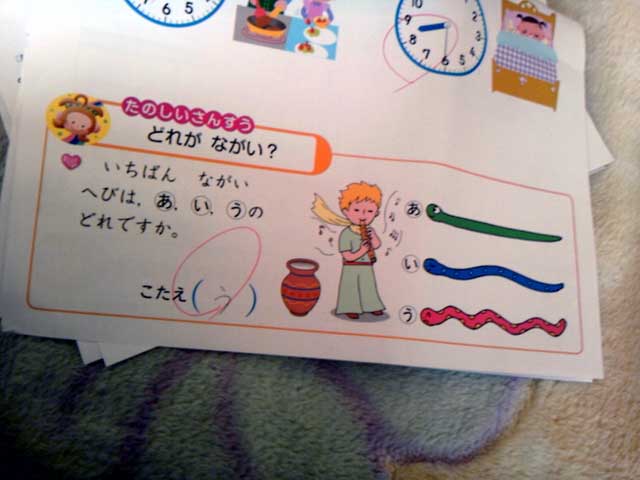 5 6 7
10 9 8 7 6 5 4 3 2
たのしいさんすう
どれが ながい?
いちばん ながい
へびは、あ、い、うの
どれですか。
こたえ( う )
あ
い
う